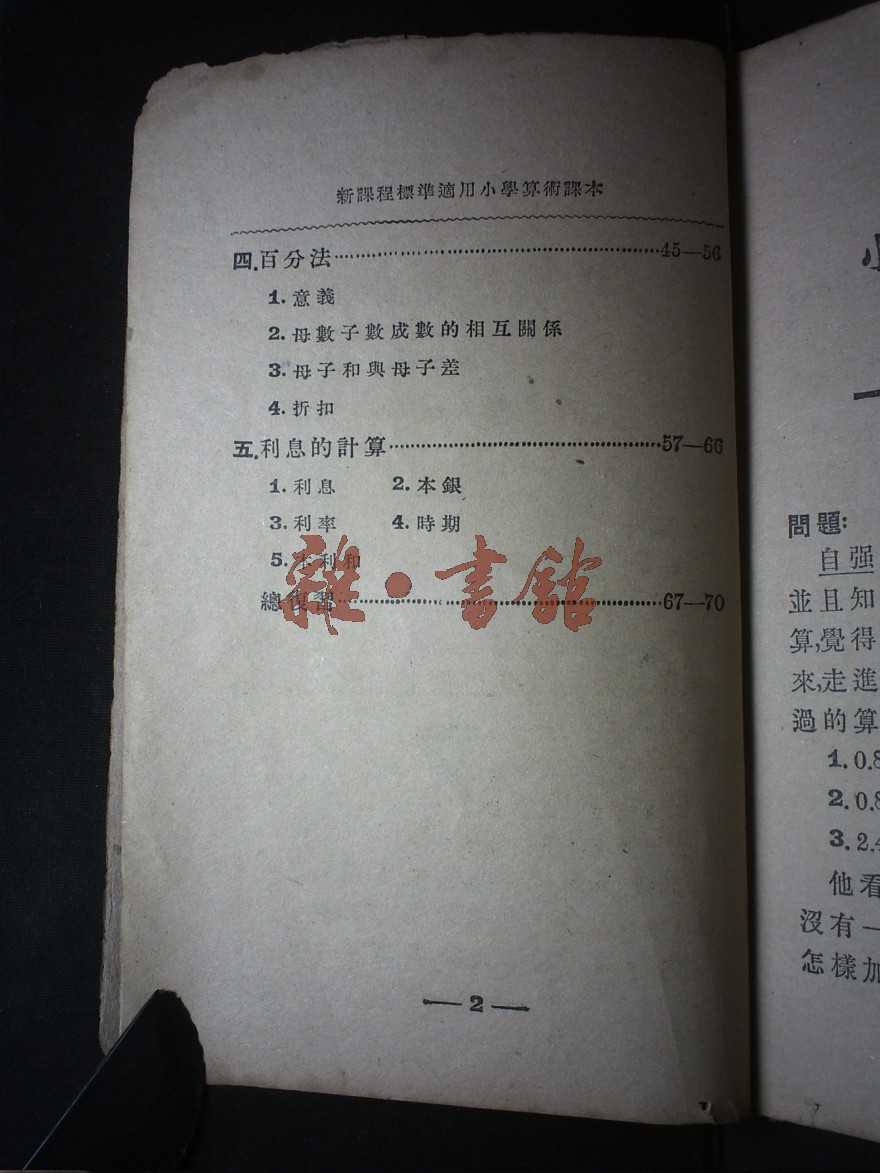 新課程標準適用小學算術課本
四.百分法……45—56
1.意義
2.母數子數成數的相互關係
3.母子和與母子差
4.折扣
五.利息的計算……57—66
1.利息 2.本銀
3.利率 4.時期
5.本利和
總復習……67—70
雜·書館
—2—
問題:
自强
並且知
算,覺得
來,走進
過的算
1.0.8
2.0.8
3.2.4
他看
沒有一
怎樣加